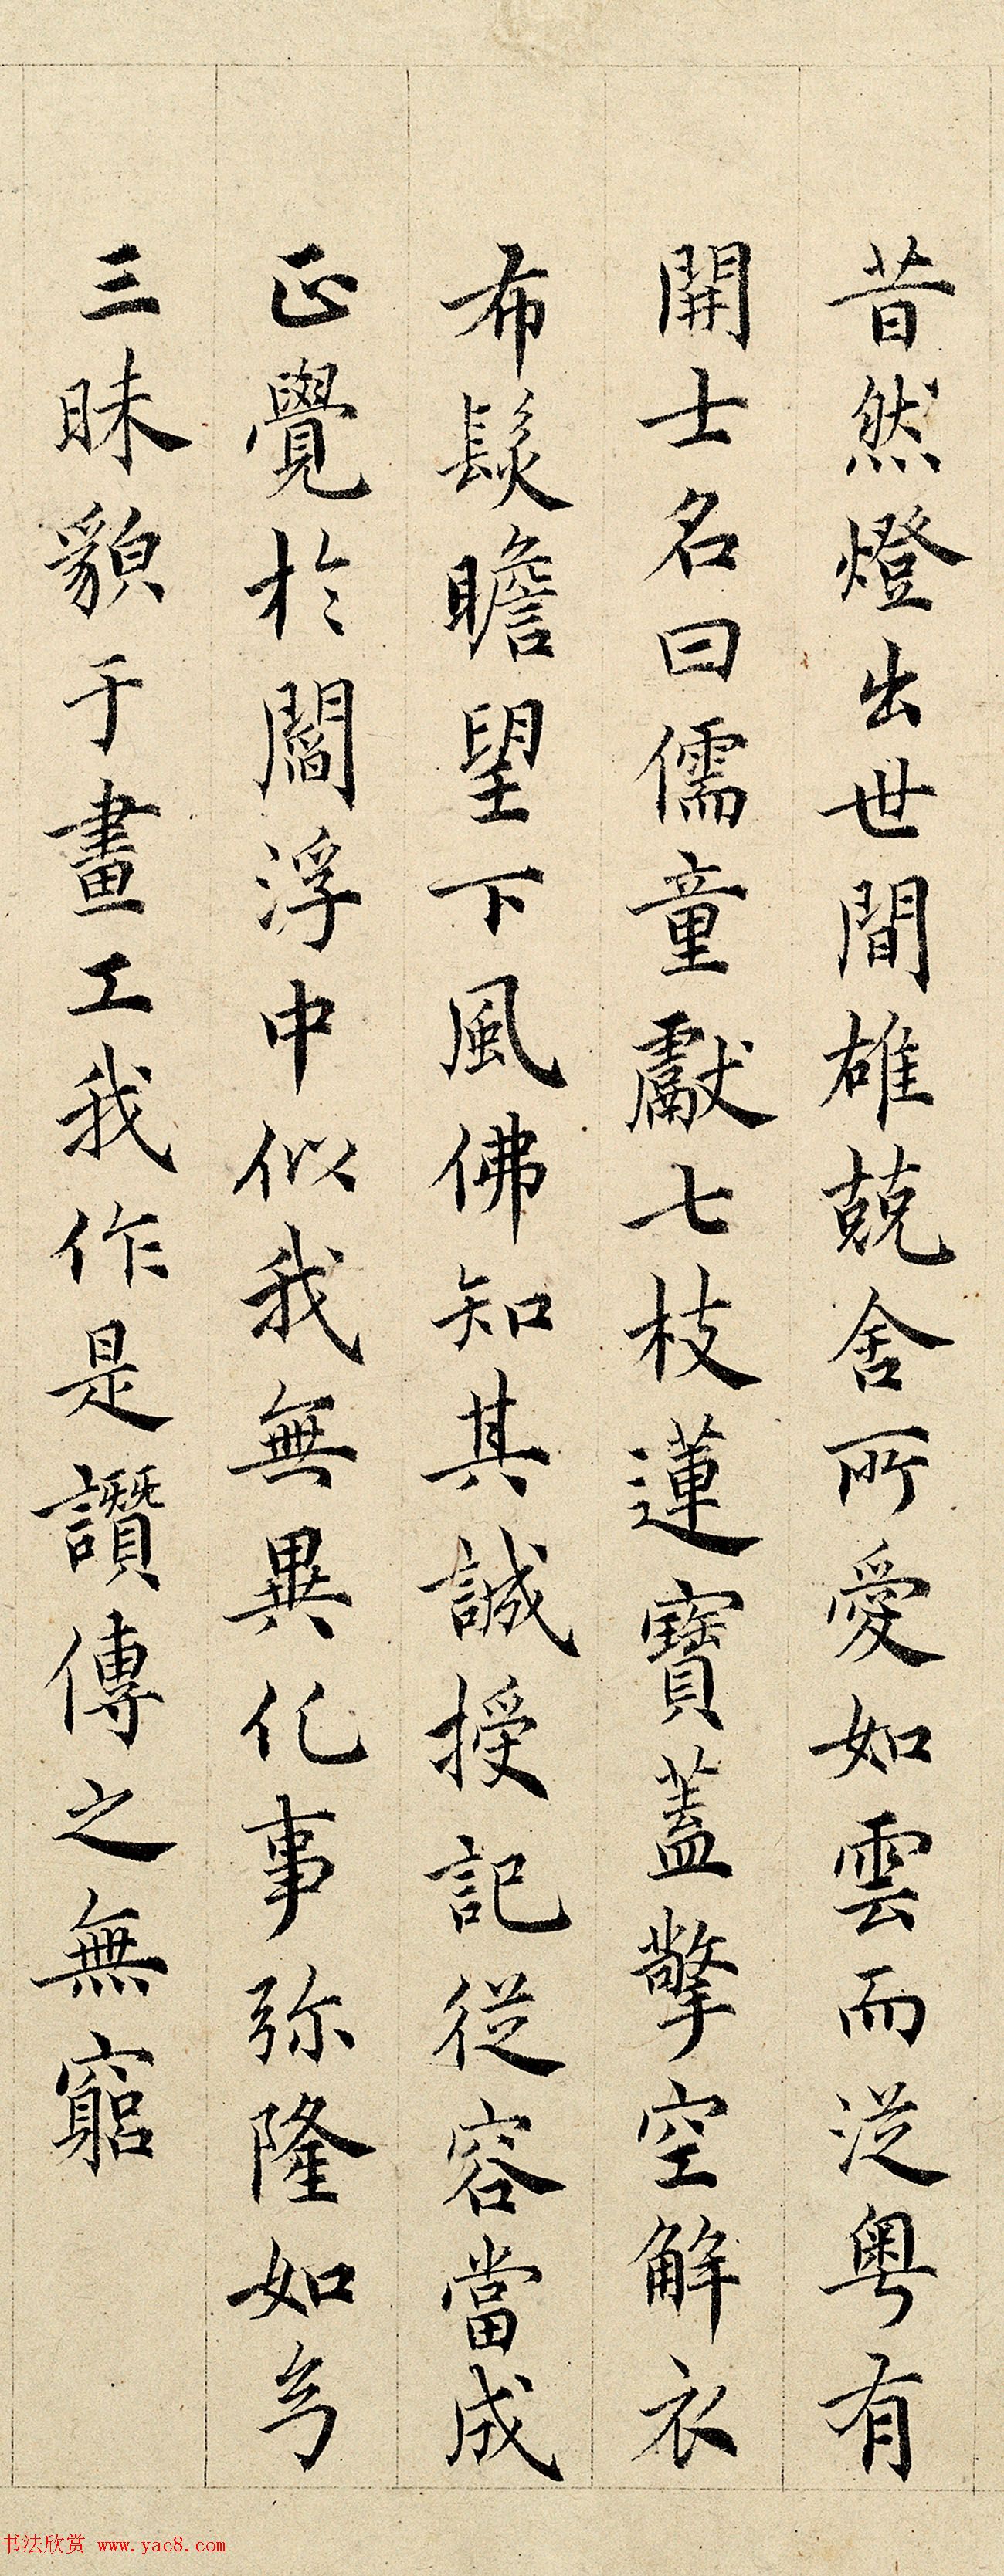 昔然燈出世間雄兢舍所愛如雲而泛粤有
開士名曰儒童獻七枝蓮寶蓋擎空解衣
布髮瞻望下風佛知其誠授記從容當成
正覺於閻浮中似我無異化事弥隆如今
三昧貌于畫工我作是讚傳之無窮
书法欣赏 www.yac8.com